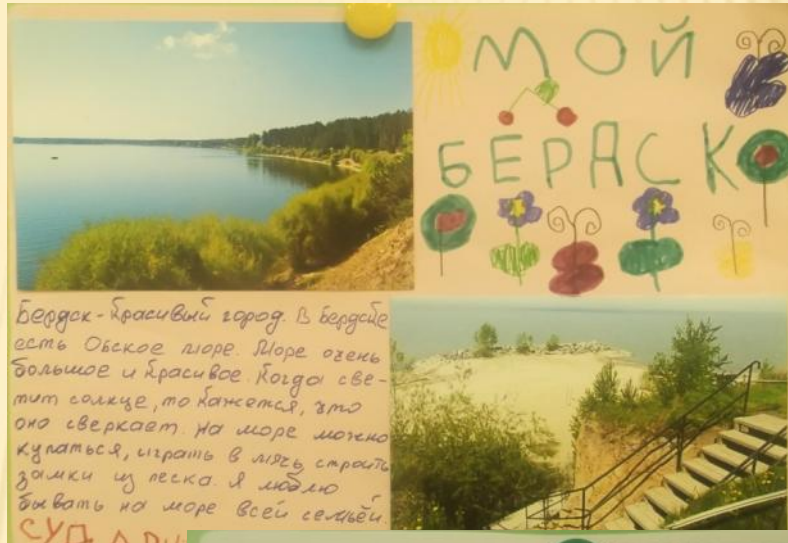 МОЙ
БЕРДСК
Бердск-красивый город. В Бердске
есть Обское море. Море очень
большое и красивое. Когда све-
тит солнце, то кажется, что
оно сверкает. На море можно
купаться, играть в мяч, строить
замки из песка. Я люблю
бывать на море всей семьёй.